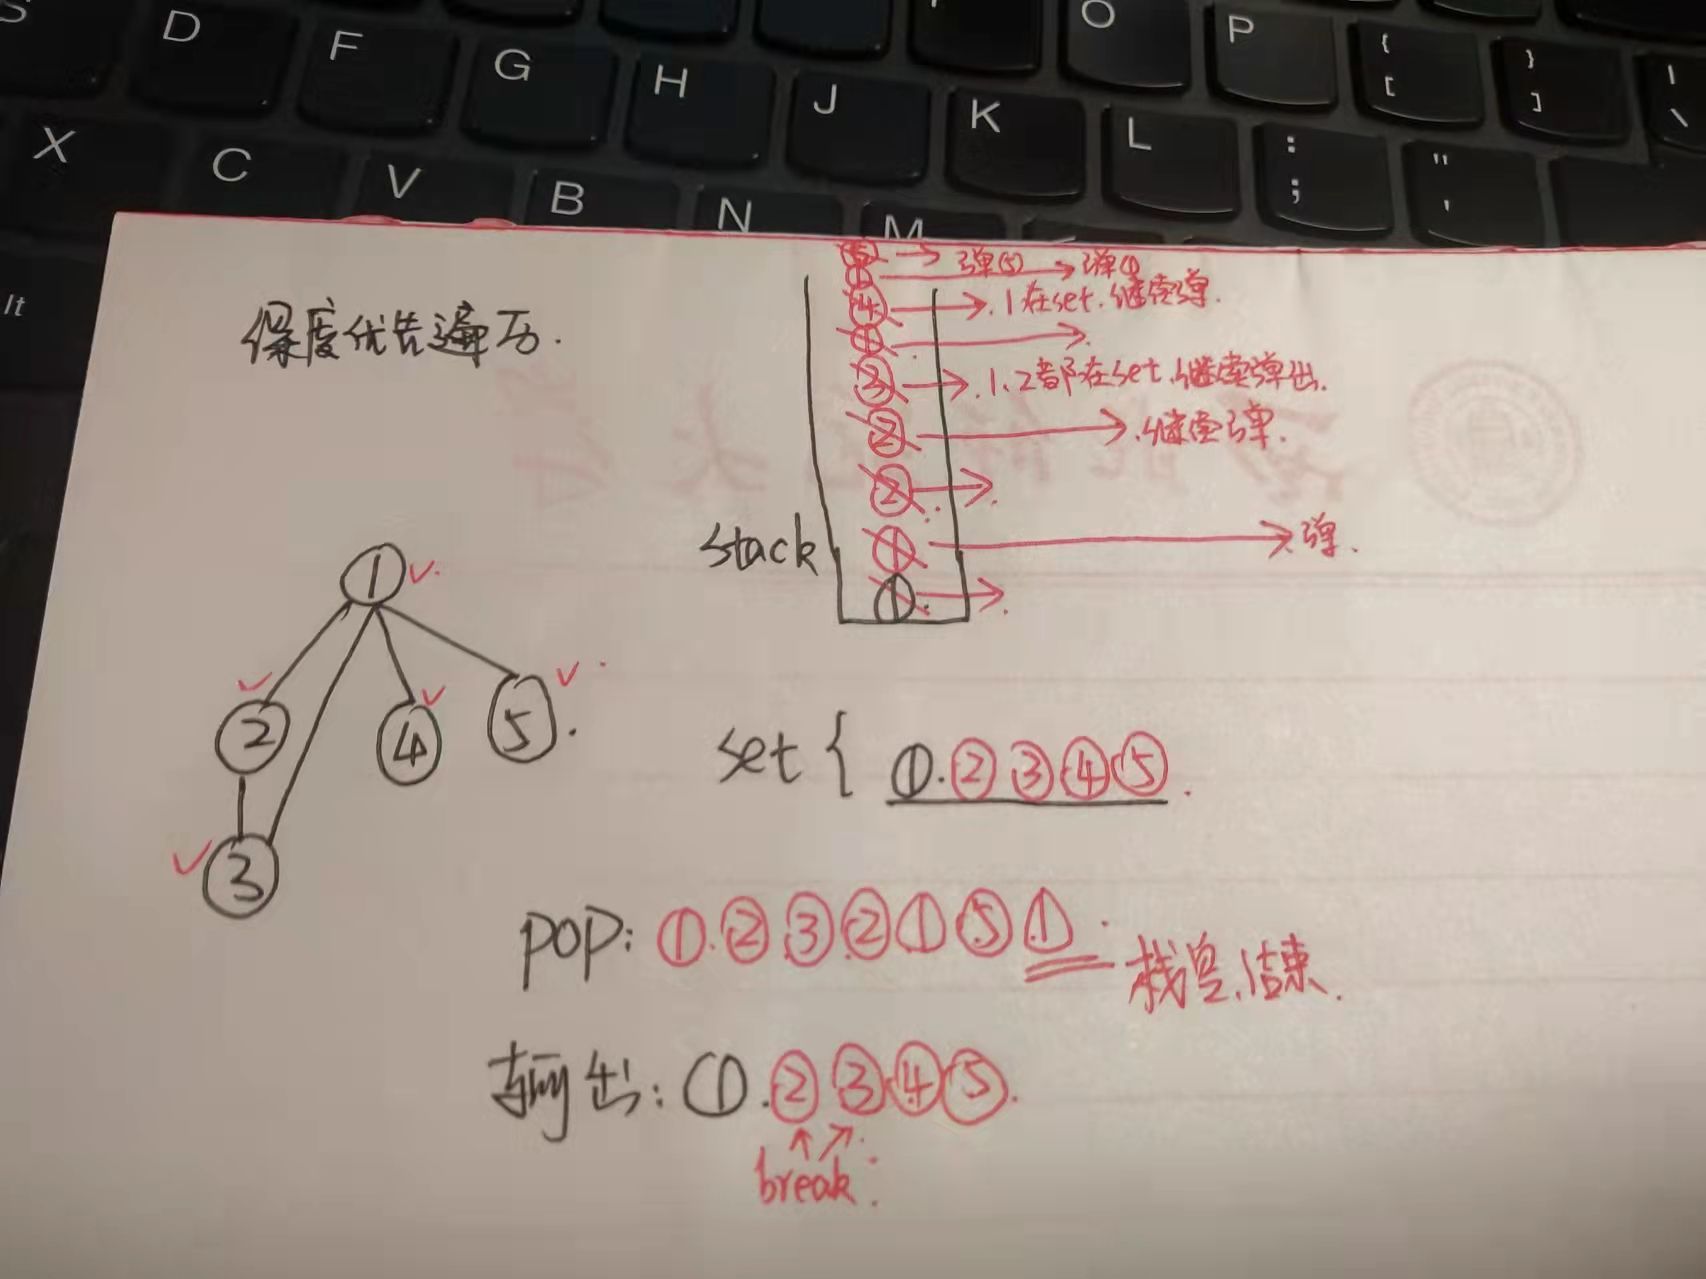 S D F G H J K L O P { [ } ] : ; " ' \
X C V B N M
lt
深度优先遍历.
⑤ → 弹⑤ → 弹①
①
④ → .1在set.继续弹.
① →
③ → .1.2都在set.继续弹出.
② → .继续弹.
② →
stack
① → 弹.
① →
① ✓.
② ✓
④ ✓
⑤. ✓
③ ✓
set { ①.②③④⑤.
pop: ①.②③②①⑤①. 栈空.结束.
输出: ①.②③④⑤.
break.